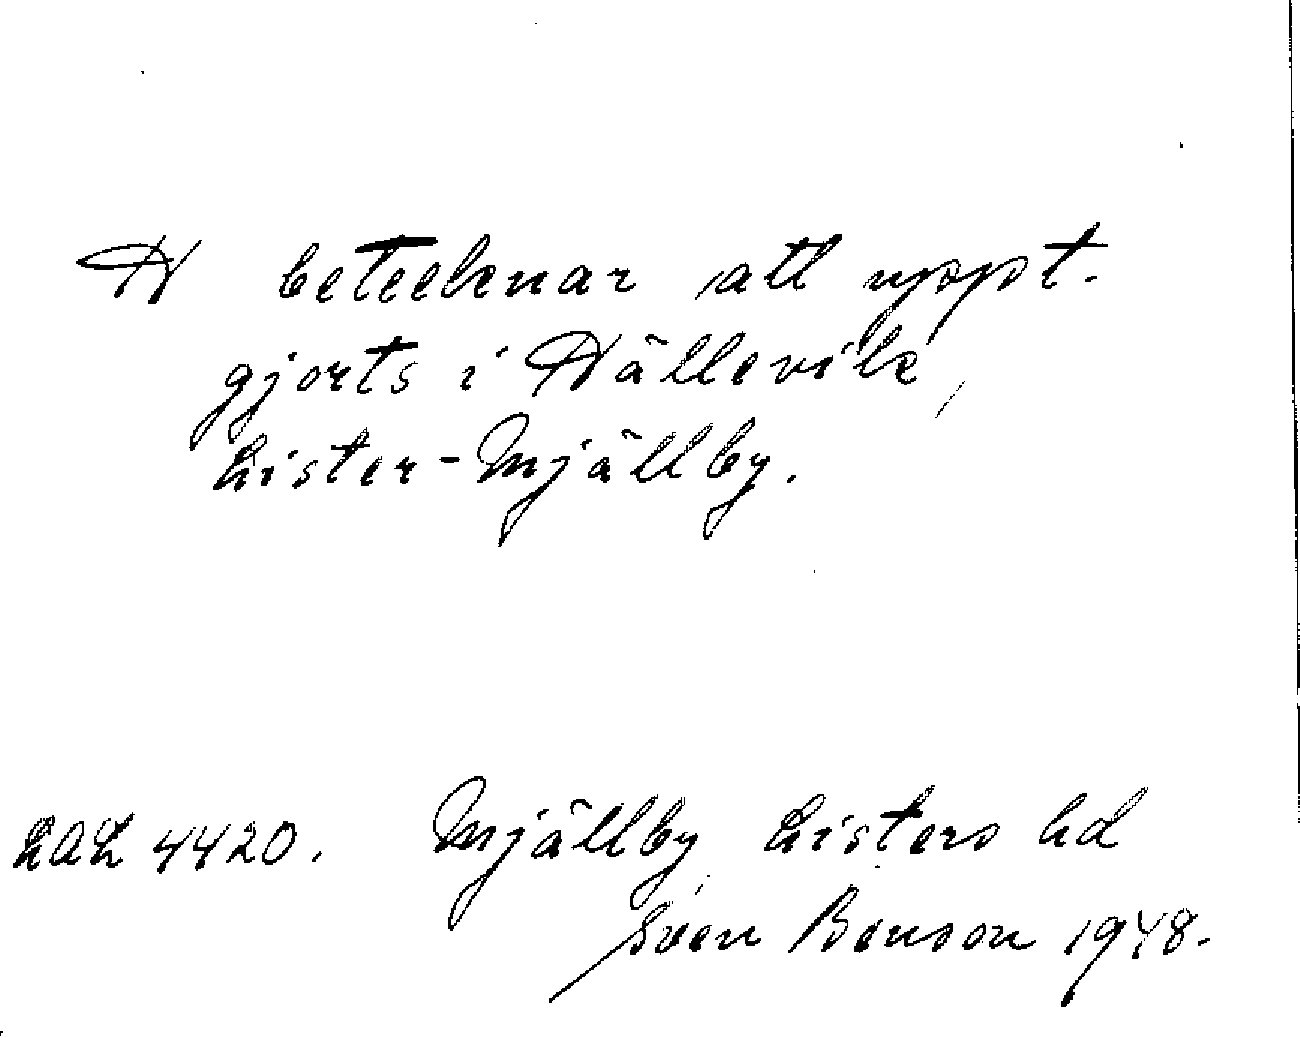 H betecknar att uppt.
gjorts i Hällevik,
Lister-Mjällby.
LAL 4420. Mjällby, Listers hd
Sven Benson 1948.